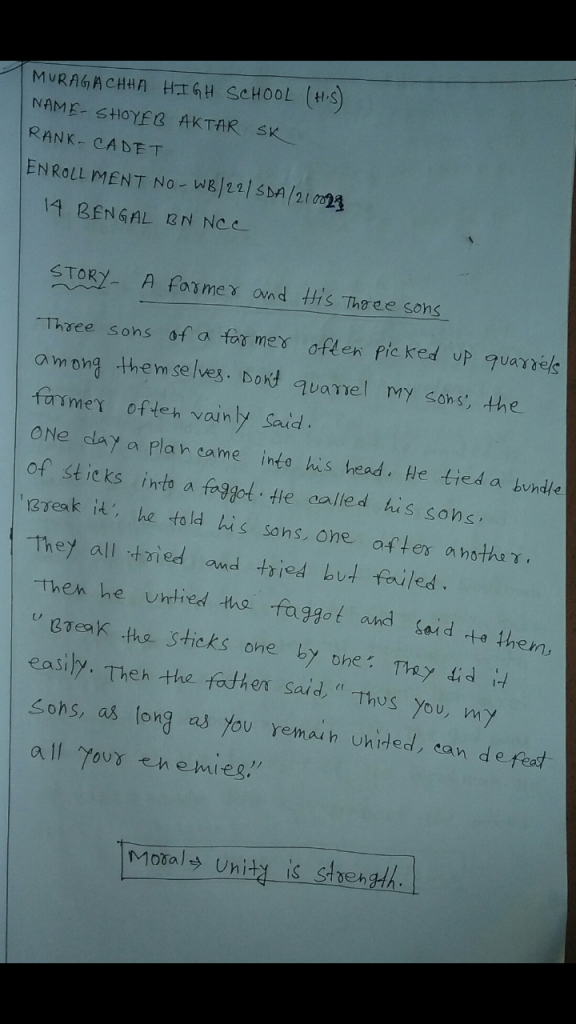 MURAGACHHA HIGH SCHOOL (H.S)
NAME- SHOYEB AKTAR SK
RANK- CADET
ENROLLMENT NO - WB/22/SDA/210023
14 BENGAL BN NCC
STORY- A farmer and His Three sons
Three sons of a farmer often picked up quarrels
among themselves. Don't quarrel my sons', the
farmer often vainly said.
ONe day a plan came into his head. He tied a bundle
of sticks into a faggot. He called his sons.
'Break it', he told his sons, one after another.
They all tried and tried but failed.
Then he untied the faggot and said to them,
"Break the sticks one by one". They did it
easily. Then the father said, "Thus you, my
sons, as long as you remain united, can defeat
all your enemies."
Moral → Unity is strength.